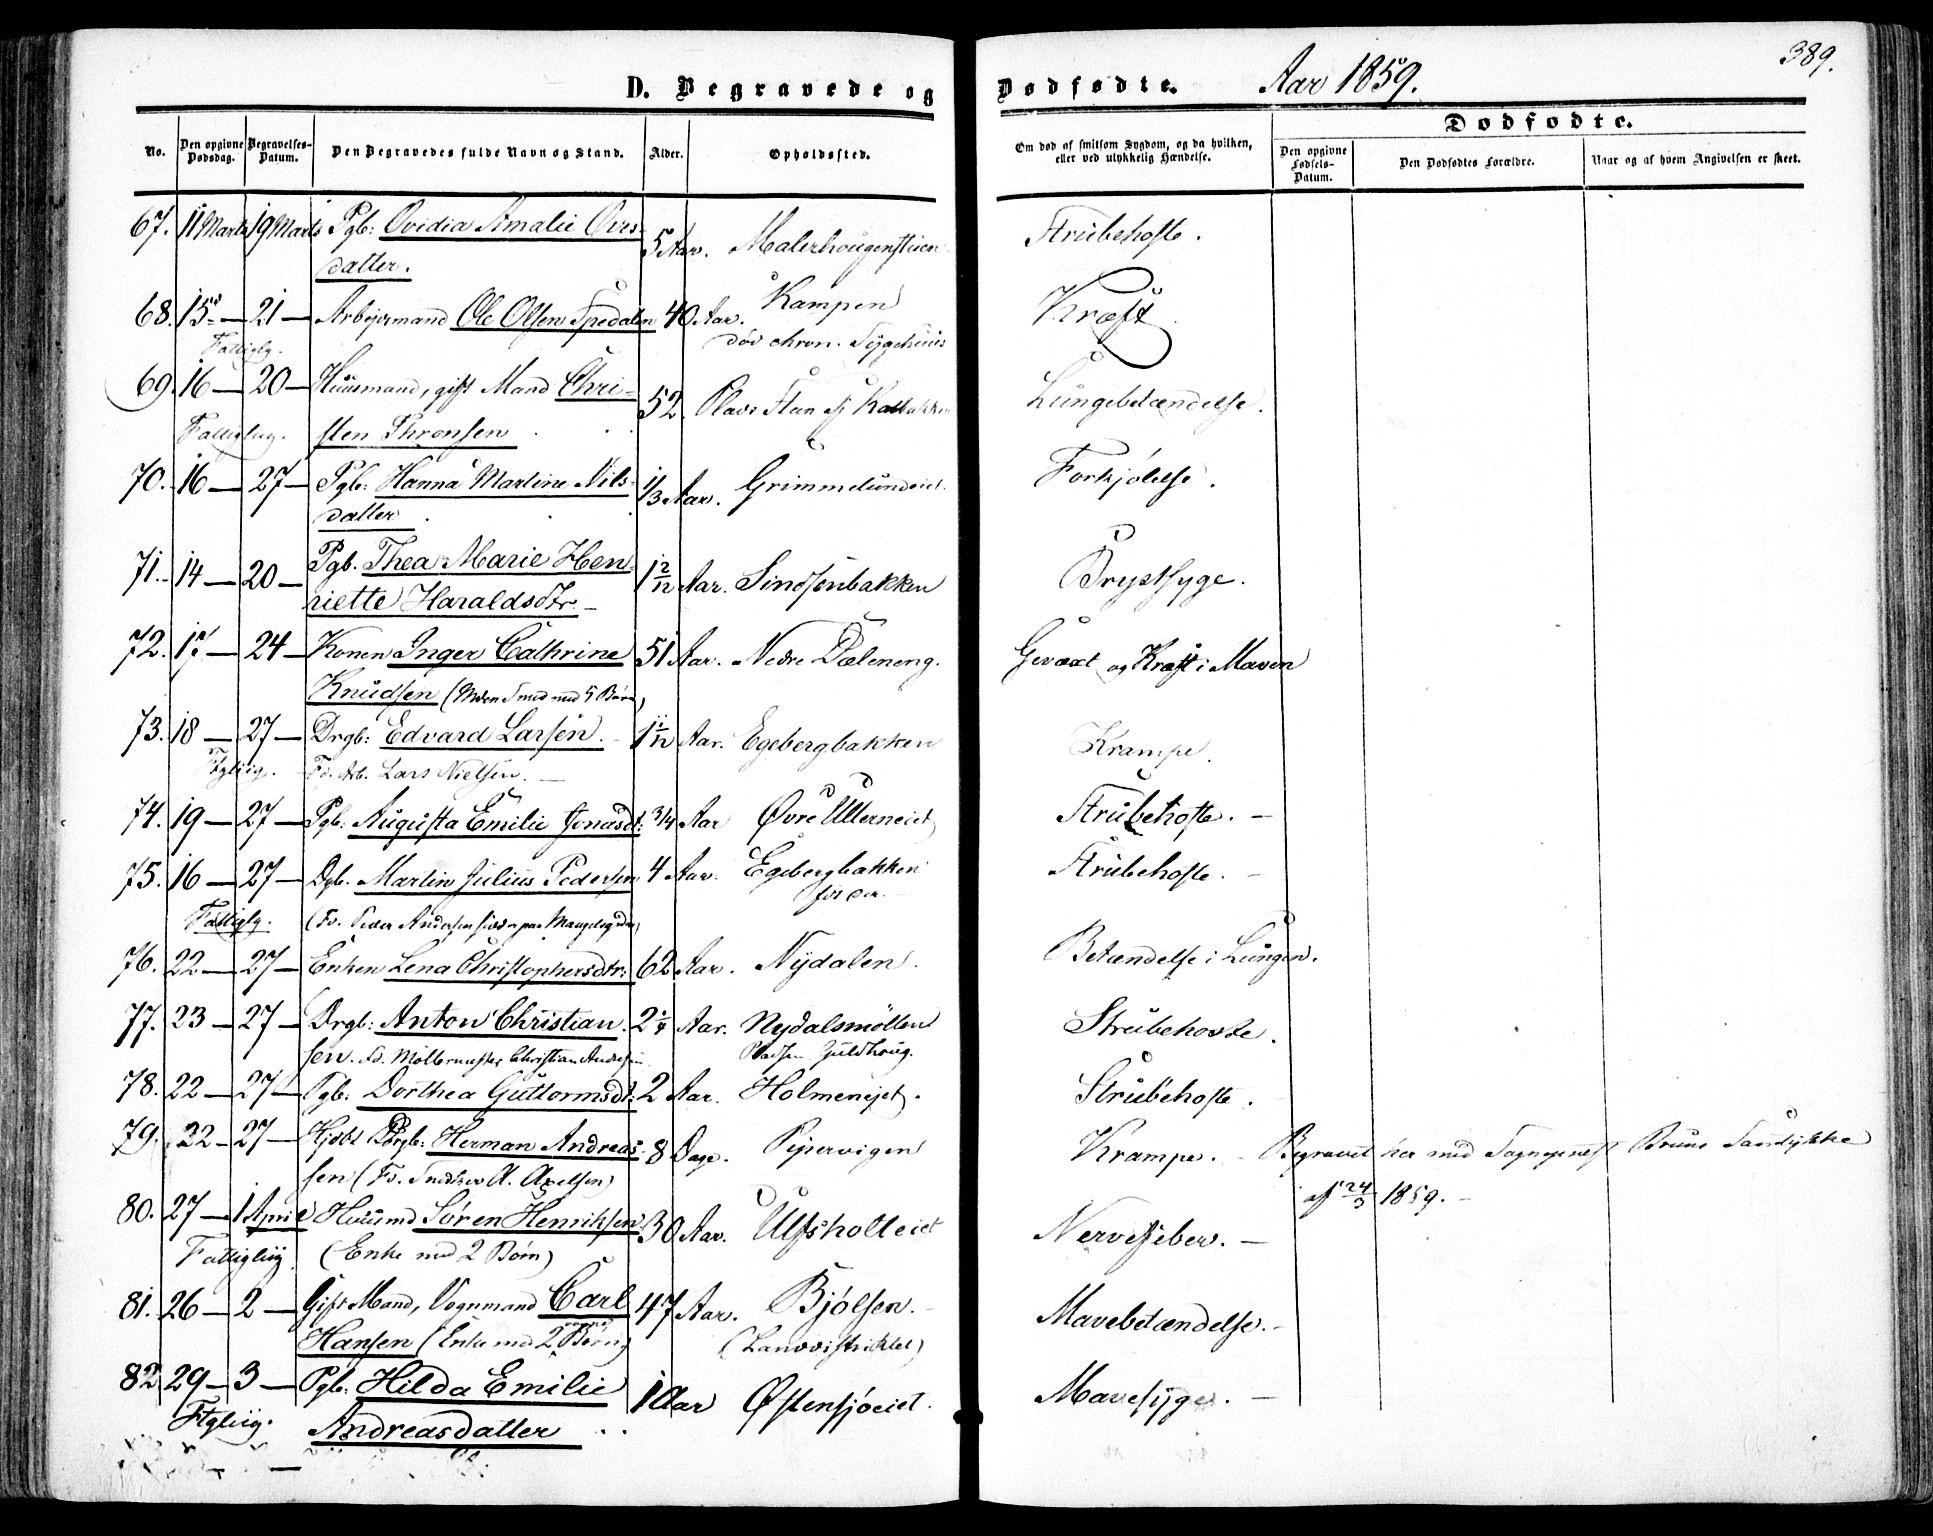 D. Begravede og Dødfødte. Aar 1859. 389.
Dødfødte.
No. Den opgivne Dødsdag. Begravelses-Datum. Den Begravedes fulde Navn og Stand. Alder. Opholdssted. Om død af smitsom Sygdom, og da hvilken, eller ved ulykkelig Hændelse. Den opgivne Fødsels-Datum. Den Dødfødtes Forældre. Naar og af hvem Angivelsen er skeet.
67. 11 Marts 19 Marts Pgb: Ovidia Amalie Overs- 5 Aar. Malerhougenstuen Strubehoste.
datter.
68. 15 — 21 — Arbejdermand Ole Olsen Spedalen 40 Aar. Kampen Kræft
Fattiglg. død chron. Sygehuus
69. 16 — 20 — Huusmand, gift Mand Chri- 52 Lungebetændelse.
Fattiglug. sten Thronsen
70. 16 — 27 — Pgb: Hanna Martine Nils- 1/3 Aar. Grimmelundeiet. Forkjølelse.
datter
71. 14 — 20 — Pgb. Thea Marie Hen- 1 2/12 Aar. Sinsenbakken Brystsyge.
riette Haraldsdtr —
72. 17 — 24 — Konen Inger Cathrine 51 Aar. Nedre Dæleneng. Gevæxt og Kræft i Maven
Knudsen (Mden Smed med 5 Børn)
73. 18 — 27 — Drgb: Edvard Larsen. 1 1/12 Aar. Egebergbakken Krampe.
Ftgliig. Fd. Arb. Lars Nielsen. —
74. 19 — 27 — Pgb: Augusta Emilie Jonasdt: 3/4 Aar Øvre Ullerneiet Strubehoste. —
75. 16 — 27 — Dgb. Martin Julius Pedersen 4 Aar. Egebergbakken Strubehoste. —
Fattiglg. (Fd. Peder Andersen
76. 22 — 27 — Enken Lena Christophersdtr: 62 Aar. Nydalen. Betændelse i Lungen.
77. 23 — 27 — Drgb: Anton Christian 2 1/4 Aar. Nydalsmøllen Strubehoste.
sen. Fd. Møllermester Christian Andersen Pladsen Guldhoug.
78. 22 — 27 — Pgb: Dorthea Guttormsdt: 2 Aar. Holmenejet. Strubehoste.
79. 22 — 27 — Hjdbt Drgb: Herman Andreas- 8 Dage. Pipervigen Krampe. — Begravet her med Sognepræst Bruns Samtykke
sen (Fd. Snedker A. Axelsen) af 24/3 1859. —
80. 27 — 1 April Huusmd Søren Henriksen 30 Aar. Ulfsholteiet Nervefeber. —
Fattigliig (Enke med 2 Børn)
81. 26 — 2 — Gift Mand, Vognmand Carl 47 Aar. Bjølsen. Mavebetændelse. —
Hansen (Enke med 2 Børn)
82 29 — 3 — Pgb: Hilda Emilie 1 Aar Østensjøeiet. Mavesyge. —
Ftgliig. Andreasdatter